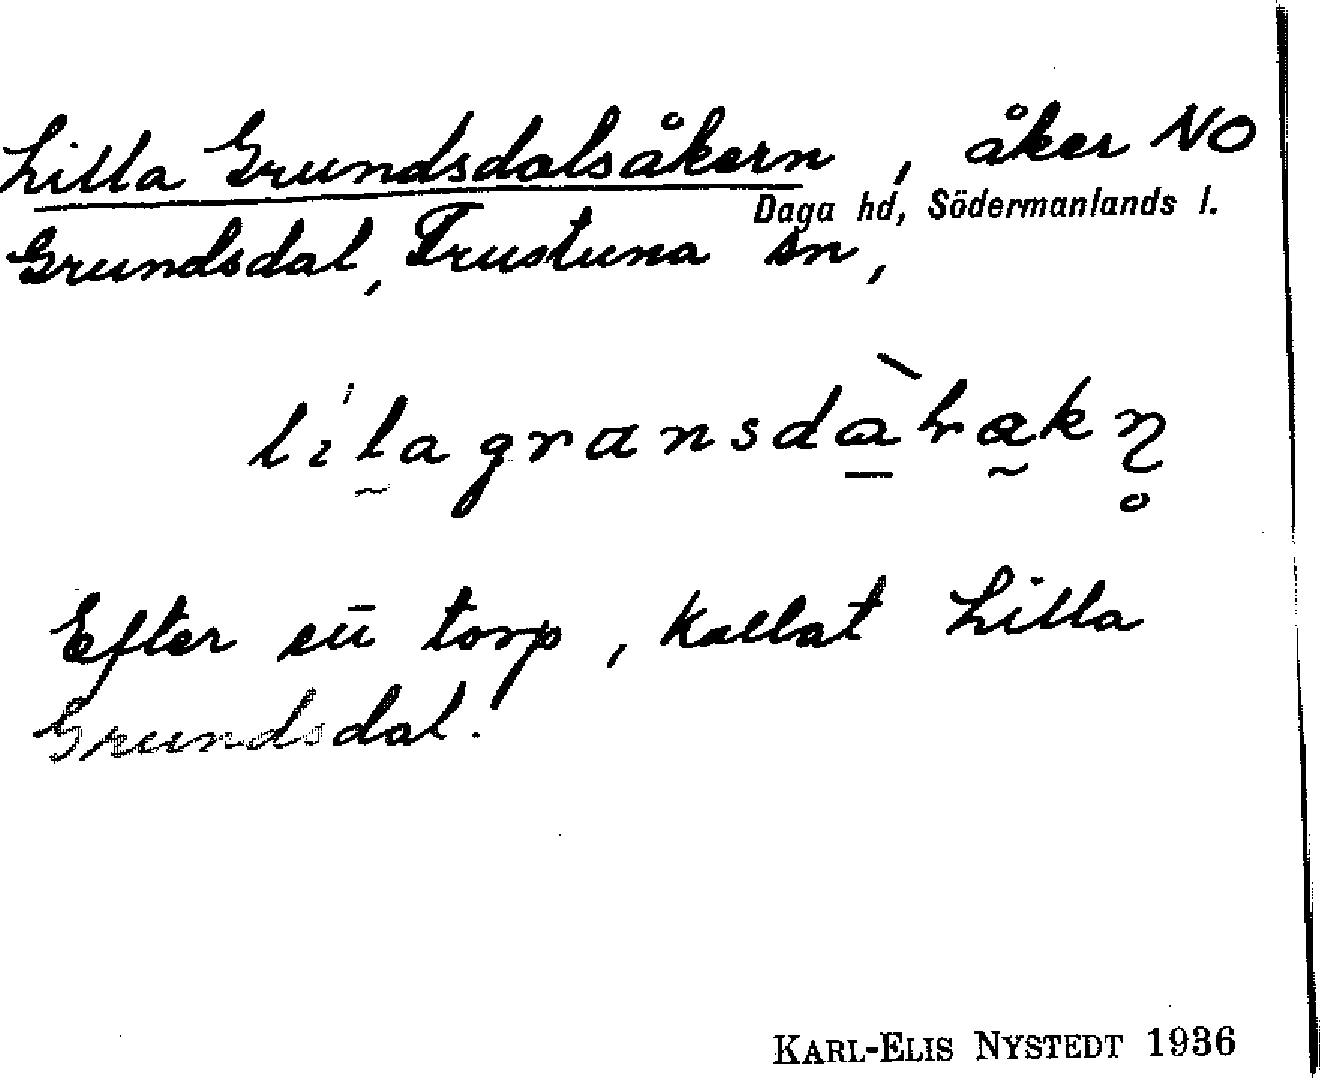 Lilla Grundsdalsåkern, åker NO
Daga hd, Södermanlands l.
Grundsdal, Frustuna sn,
Efter ett torp, kallat Lilla
Grundsdal.
KARL-ELIS NYSTEDT 1936